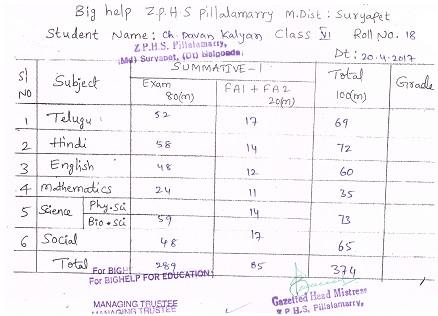 Big help Z.P.H.S Pillalamarry M.Dist: Suryapet
Student Name: Ch. Pavan Kalyan Class VI Roll No. 18
Z.P.H.S. Pillalamarry,
(Md) Suryapet, (Dt) Nalgonda
Dt: 20.4.2017
Sl NO Subject SUMMATIVE-I Total 100(m) Grade
Exam 80(m) FA1 + FA2 20(m)
1 Telugu 52 17 69
2 Hindi 58 14 72
3 English 48 12 60
4 Mathematics 24 11 35
5 Science Phy.Sci 14
Bio.Sci 59 73
6 Social 48 17 65
Total 289 85 374
For BIGH
For BIGHELP FOR EDUCATION
MANAGING TRUSTEE
MANAGING TRUSTEE
Gazetted Head Mistress
Z P H.S, Pillalamarry,